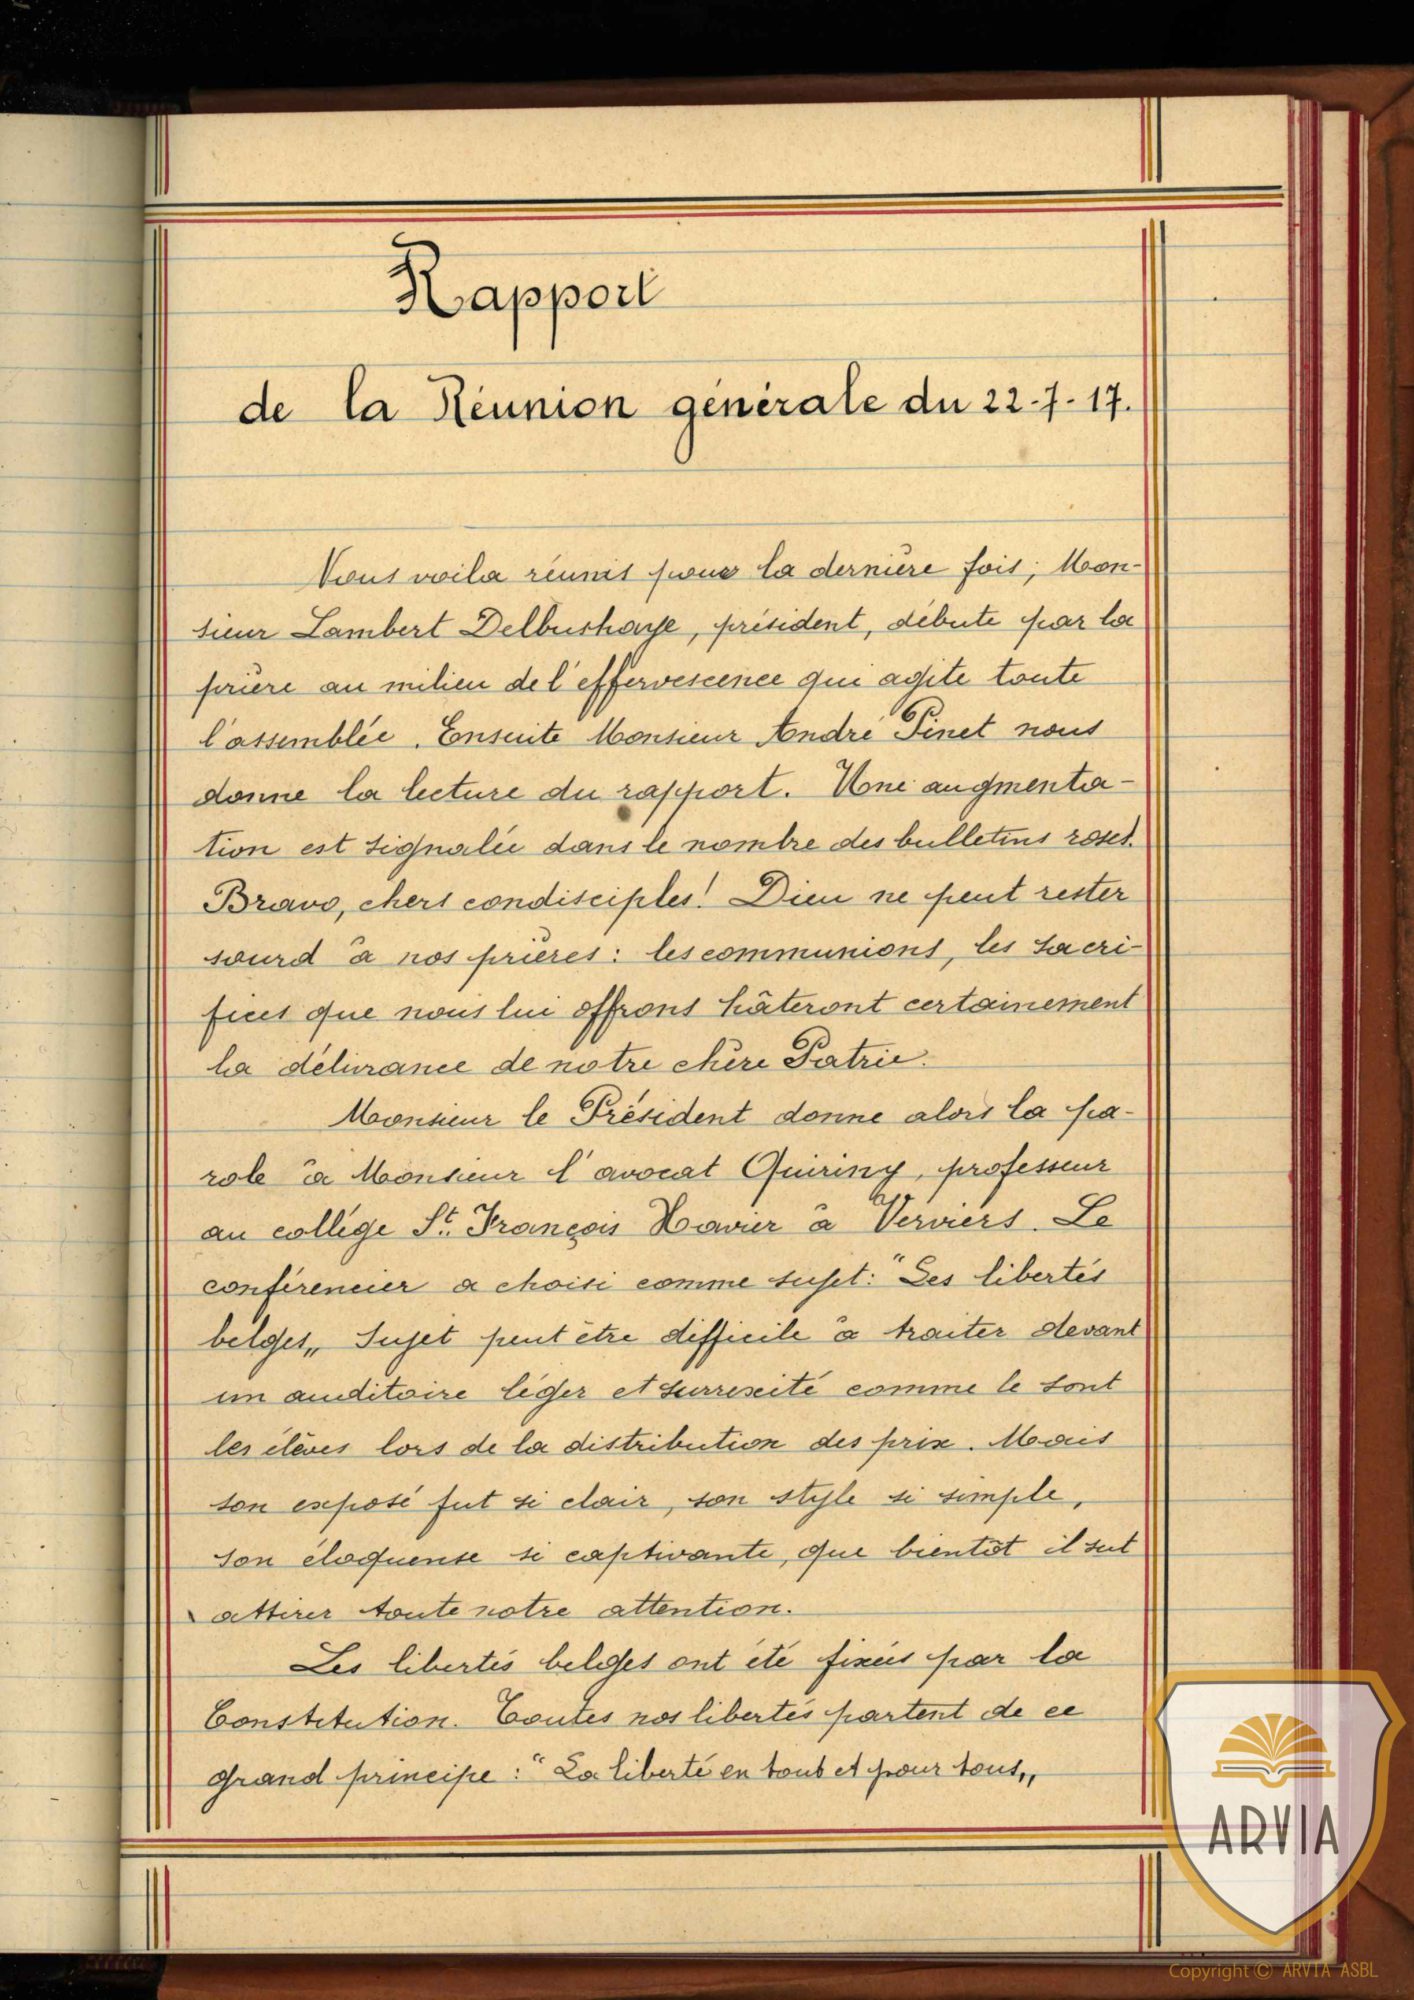 Rapport
de la Réunion générale du 22-7-17.
Nous voila réunis pour la dernière fois; Mon-
sieur Lambert Delbushaye, président, débute par la
prière au milieu de l'effervescence qui agite toute
l'assemblée. Ensuite Monsieur André Pinet nous
donne la lecture du rapport. Une augmenta-
tion est signalée dans le nombre des bulletins roses.
Bravo, chers condisciples! Dieu ne peut rester
sourd à nos prières: les communions, les sacri-
fices que nous lui offrons hâteront certainement
la délivrance de notre chère Patrie.
Monsieur le Président donne alors la pa-
role à Monsieur l'avocat Quiriny, professeur
au collége St. François Xavier à Verviers. Le
conférencier a choisi comme sujet: "Les libertés
belges„ Sujet peut être difficile à traiter devant
un auditoire léger et surrexité comme le sont
les élèves lors de la distribution des prix. Mais
son exposé fut si clair, son style si simple,
son éloquense si captivante, que bientôt il sut
attirer toute notre attention.
Les libertés belges ont été fixées par la
Constitution. Toutes nos libertés partent de ce
grand principe: "La liberté en tout et pour tous„
ARVIA
Copyright © ARVIA ASBL